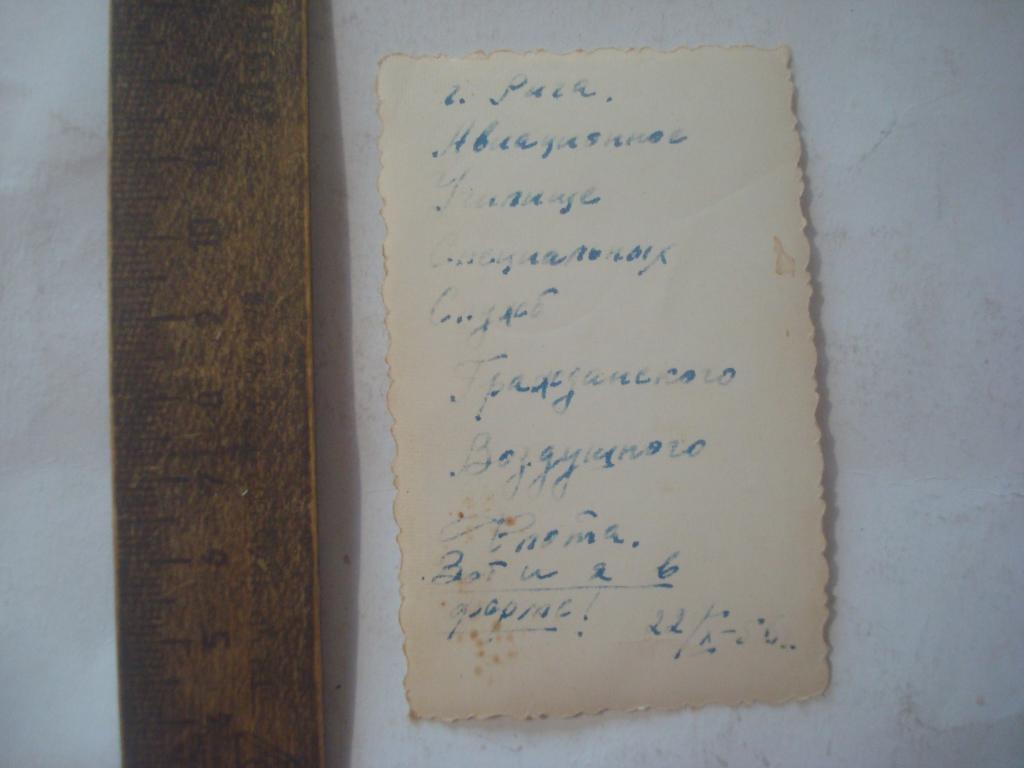 г. Рига.
Авиационное
Училище
Специальных
Служб
Гражданского
Воздушного
Флота.
Вот и я в
форме!
22/X-
12
11
10
9
8
7
6
5
4